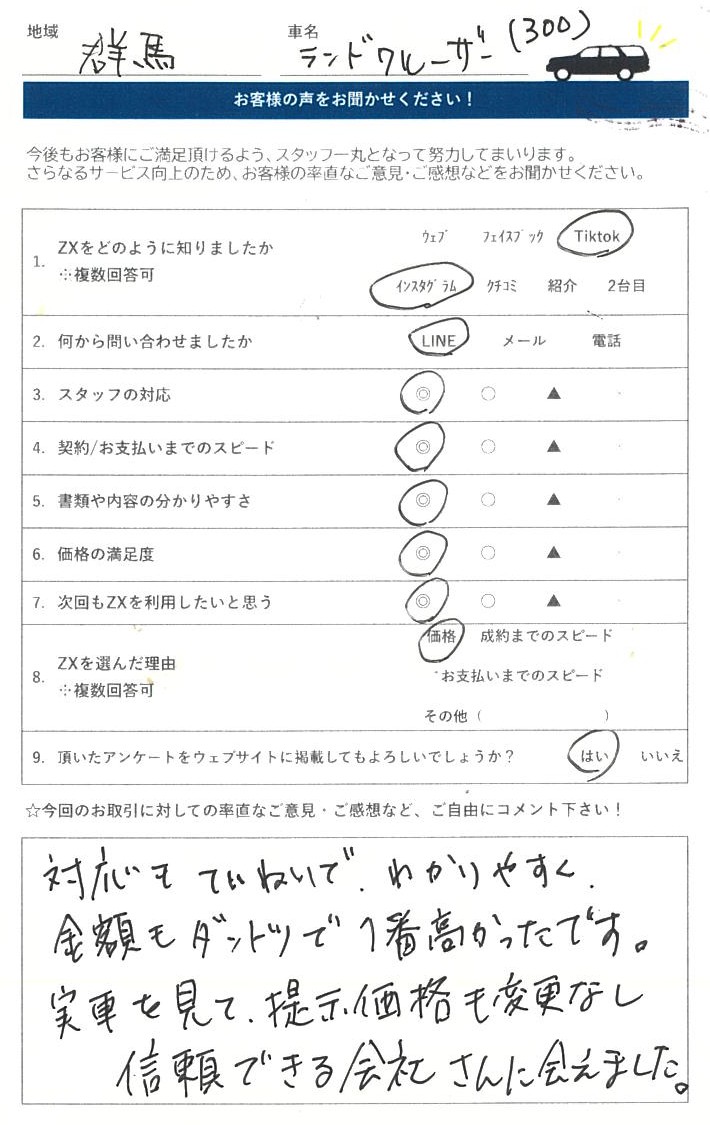 地域 群馬 車名 ランドクルーザー(300)
お客様の声をお聞かせください！
今後もお客様にご満足頂けるよう、スタッフ一丸となって努力してまいります。
さらなるサービス向上のため、お客様の率直なご意見・ご感想などをお聞かせください。
1. ZXをどのように知りましたか
※複数回答可
ウェブ フェイスブック Tiktok
インスタグラム クチコミ 紹介 2台目
2. 何から問い合わせましたか LINE メール 電話
3. スタッフの対応 ◎ ○ ▲
4. 契約/お支払いまでのスピード ◎ ○ ▲
5. 書類や内容の分かりやすさ ◎ ○ ▲
6. 価格の満足度 ◎ ○ ▲
7. 次回もZXを利用したいと思う ◎ ○ ▲
8. ZXを選んだ理由
※複数回答可
価格 成約までのスピード
お支払いまでのスピード
その他（ ）
9. 頂いたアンケートをウェブサイトに掲載してもよろしいでしょうか？ はい いいえ
☆今回のお取引に対しての率直なご意見・ご感想など、ご自由にコメント下さい！
対応も ていねいで、わかりやすく、
金額もダントツで1番高かったです。
実車を見て、提示価格も変更なし
信頼できる会社さんに会えました。